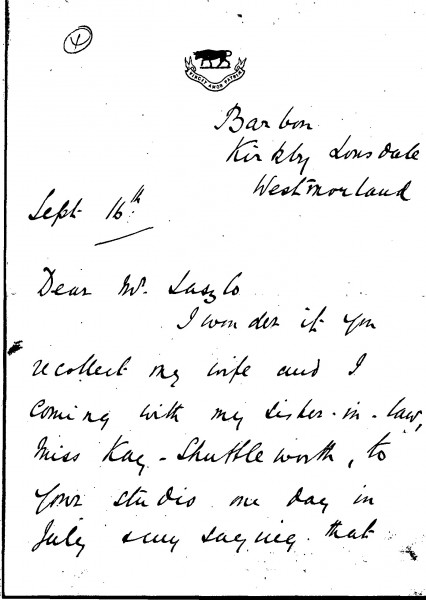 4
VINCIT AMOR PATRIÆ
Barbon
Kirkby Lonsdale
Westmorland
Sept 16th
Dear Mr. Laszlo
I wonder if you
recollect my wife and I
coming with my sister-in-law,
Miss Kay-Shuttleworth, to
your studio one day in
July & my saying that